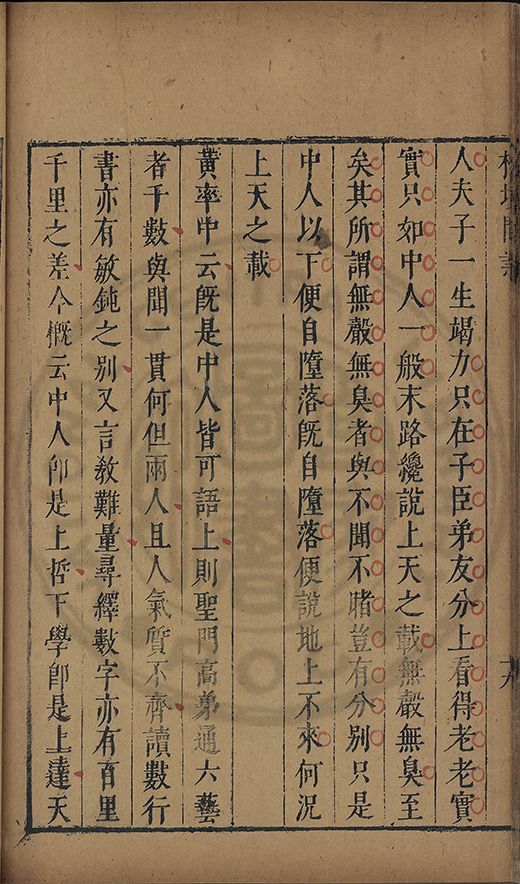 人夫子一生竭力只在子臣弟友分上看得老老實
實只如中人一般末路纔說上天之載無聲無臭至
矣其所謂無聲無臭者與不聞不睹豈有分別只是
中人以下便自墮落既自墮落便說地上不來何況
上天之載
黃率中云既是中人皆可語上則聖門高弟通六藝
者千數與聞一貫何但兩人且人氣質不齊讀數行
書亦有敏鈍之別又言教難量尋繹數字亦有百里
千里之差今概云中人卽是上哲下學卽是上達天